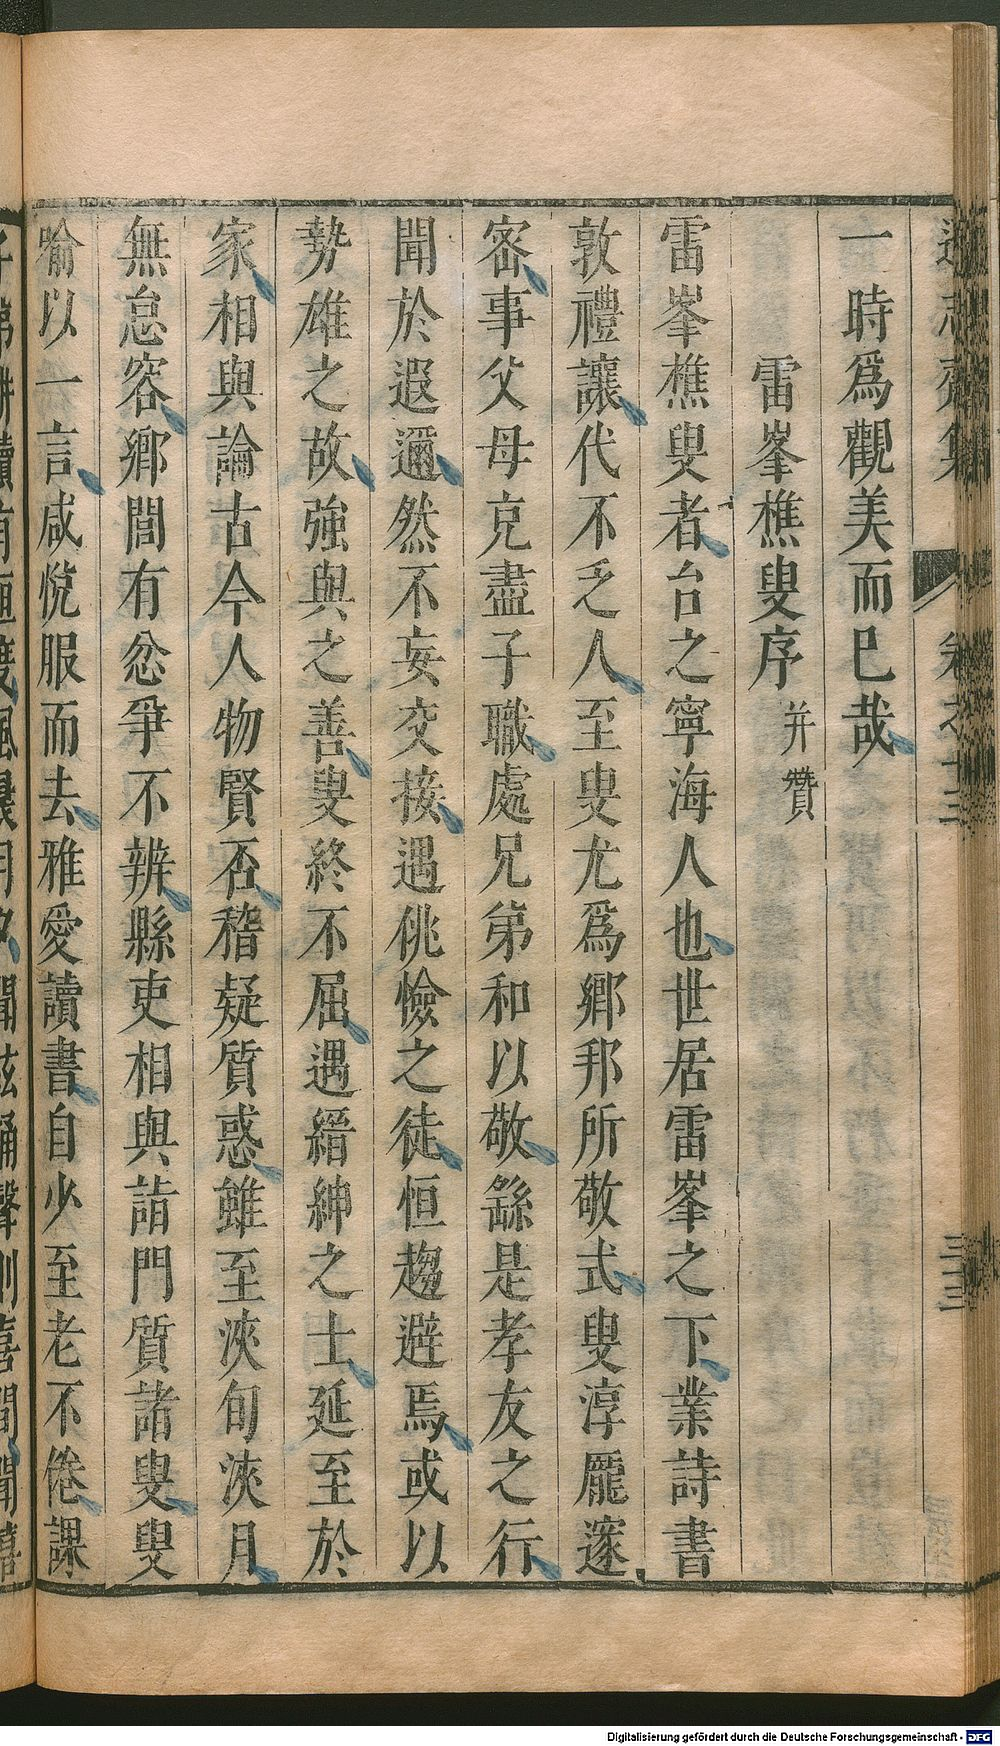 遜志齋集 卷之十三
一時爲觀美而已哉
雷峯樵叟序 并贊
雷峯樵叟者台之寧海人也世居雷峯之下業詩書
敦禮讓代不乏人至叟尤爲鄉邦所敬式叟淳龎邃
密事父母克盡子職處兄弟和以敬繇是孝友之行
聞於遐邇然不妄交接遇佻憸之徒恒趨避焉或以
勢雄之故強與之善叟終不屈遇縉紳之士延至於
家相與論古今人物賢否稽疑質惑雖至浹旬浹月
無怠容鄉閭有忿爭不辨縣吏相與詣門質諸叟叟
喻以一言咸悅服而去雅愛讀書自少至老不倦課
Digitalisierung gefördert durch die Deutsche Forschungsgemeinschaft - DFG